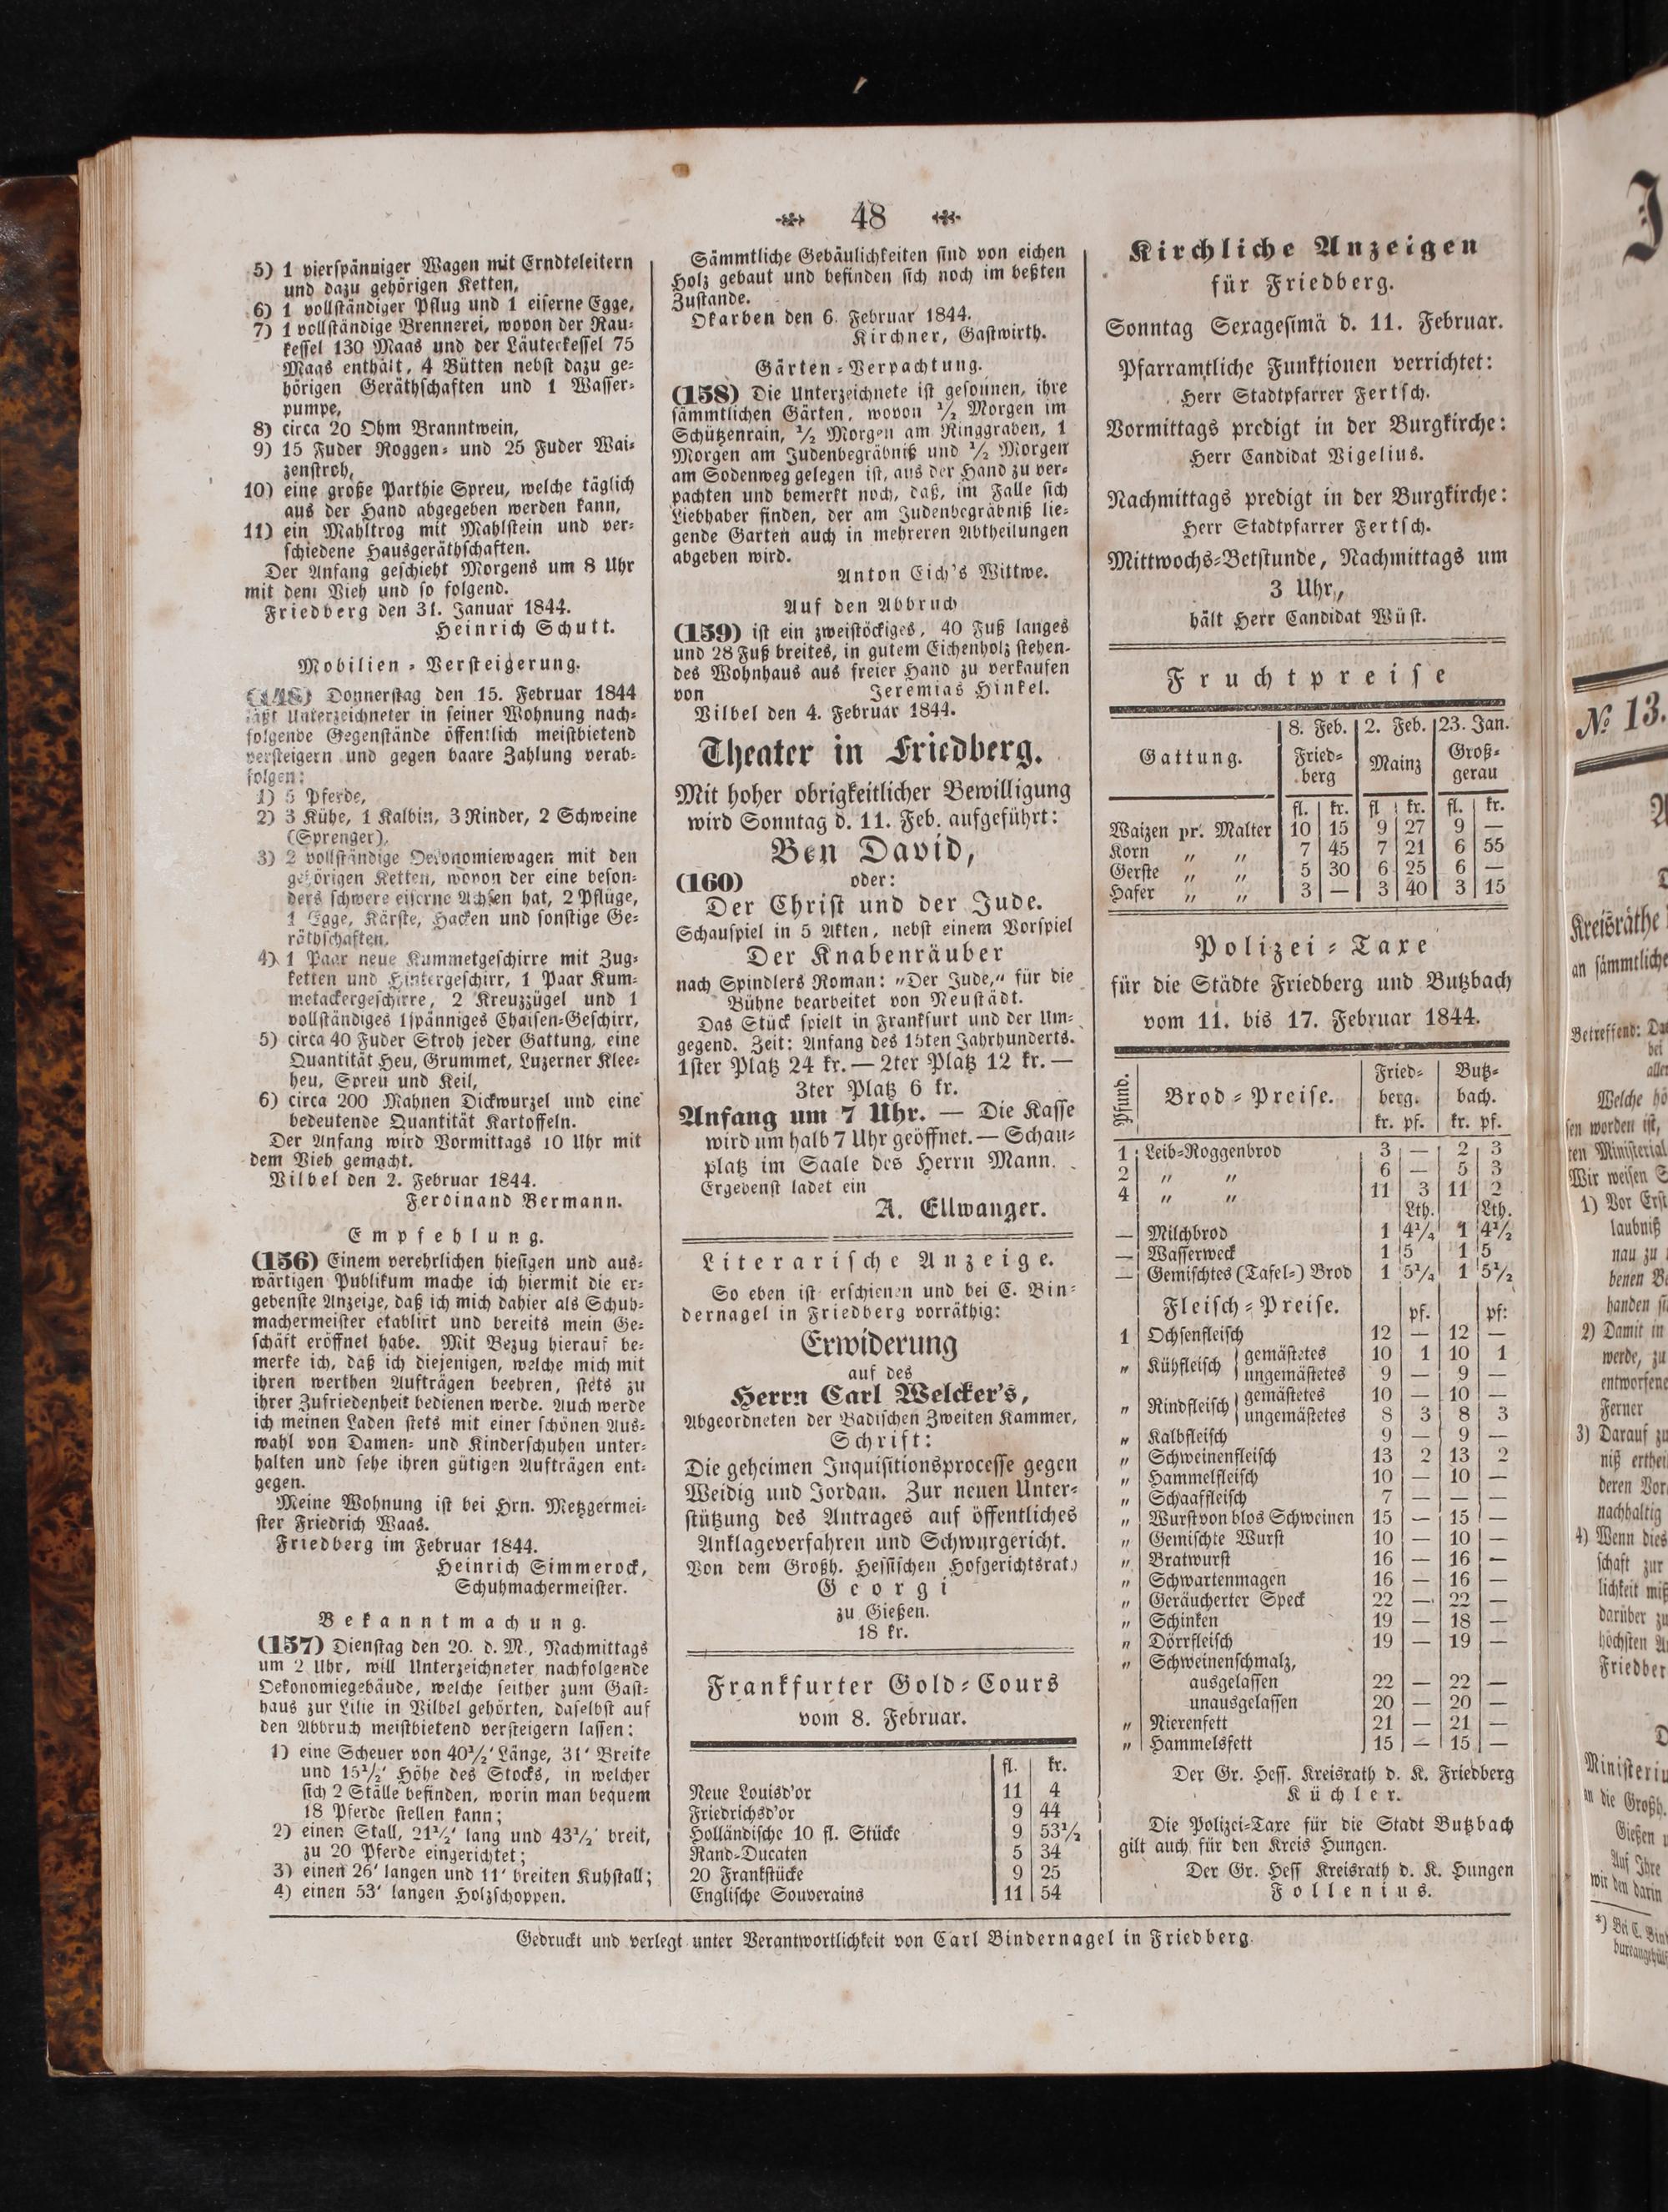 48
5) 1 vierspänniger Wagen mit Erndteleitern
und dazu gehörigen Ketten,
6) 1 vollständiger Pflug und 1 eiserne Egge,
7) 1 vollständige Brennerei, wovon der Rau-
kessel 130 Maas und der Läuterkessel 75
Maas enthält, 4 Bütten nebst dazu ge-
hörigen Geräthschaften und 1 Wasser-
pumpe,
8) circa 20 Ohm Branntwein,
9) 15 Fuder Roggen- und 25 Fuder Wai-
zenstroh,
10) eine große Parthie Spreu, welche täglich
aus der Hand abgegeben werden kann,
11) ein Mahltrog mit Mahlstein und ver-
schiedene Hausgeräthschaften.
Der Anfang geschieht Morgens um 8 Uhr
mit dem Vieh und so folgend.
Friedberg den 31. Januar 1844.
Heinrich Schutt.
Mobilien-Versteigerung.
(148) Donnerstag den 15. Februar 1844
läßt Unterzeichneter in seiner Wohnung nach-
folgende Gegenstände öffentlich meistbietend
versteigern und gegen baare Zahlung verab-
folgen:
1) 5 Pferde,
2) 3 Kühe, 1 Kalbin, 3 Rinder, 2 Schweine
(Sprenger),
3) 2 vollständige Oeconomiewagen mit den
gehörigen Ketten, wovon der eine beson-
ders schwere eiserne Achsen hat, 2 Pflüge,
1 Egge, Kärste, Hacken und sonstige Ge-
räthschaften,
4) 1 Paar neue Kummetgeschirre mit Zug-
ketten und Hintergeschirr, 1 Paar Kum-
metackergeschirre, 2 Kreuzzügel und 1
vollständiges 1spänniges Chaisen-Geschirr,
5) circa 40 Fuder Stroh jeder Gattung, eine
Quantität Heu, Grummet, Luzerner Klee-
heu, Spreu und Keil,
6) circa 200 Mahnen Dickwurzel und eine
bedeutende Quantität Kartoffeln.
Der Anfang wird Vormittags 10 Uhr mit
dem Vieh gemacht.
Vilbel den 2. Februar 1844.
Ferdinand Bermann.
Empfehlung.
(156) Einem verehrlichen hiesigen und aus-
wärtigen Publikum mache ich hiermit die er-
gebenste Anzeige, daß ich mich dahier als Schuh-
machermeister etablirt und bereits mein Ge-
schäft eröffnet habe. Mit Bezug hierauf be-
merke ich, daß ich diejenigen, welche mich mit
ihren werthen Aufträgen beehren, stets zu
ihrer Zufriedenheit bedienen werde. Auch werde
ich meinen Laden stets mit einer schönen Aus-
wahl von Damen- und Kinderschuhen unter-
halten und sehe ihren gütigen Aufträgen ent-
gegen.
Meine Wohnung ist bei Hrn. Metzgermei-
ster Friedrich Waas.
Friedberg im Februar 1844.
Heinrich Simmerock,
Schuhmachermeister.
Bekanntmachung.
(157) Dienstag den 20. d. M., Nachmittags
um 2 Uhr, will Unterzeichneter nachfolgende
Oekonomiegebäude, welche seither zum Gast-
haus zur Lilie in Vilbel gehörten, daselbst auf
den Abbruch meistbietend versteigern lassen:
1) eine Scheuer von 40½' Länge, 31' Breite
und 15½' Höhe des Stocks, in welcher
sich 2 Ställe befinden, worin man bequem
18 Pferde stellen kann;
2) einen Stall, 21½' lang und 43½' breit,
zu 20 Pferde eingerichtet;
3) einen 26' langen und 11' breiten Kuhstall;
4) einen 53' langen Holzschoppen.
Sämmtliche Gebäulichkeiten sind von eichen
Holz gebaut und befinden sich noch im beßten
Zustande.
Okarben den 6. Februar 1844.
Kirchner, Gastwirth.
Gärten-Verpachtung.
(158) Die Unterzeichnete ist gesonnen, ihre
sämmtlichen Gärten, wovon ½ Morgen im
Schützenrain, ½ Morgen am Ringgraben, 1
Morgen am Judenbegräbniß und ½ Morgen
am Sodenweg gelegen ist, aus der Hand zu ver-
pachten und bemerkt noch, daß, im Falle sich
Liebhaber finden, der am Judenbegräbniß lie-
gende Garten auch in mehreren Abtheilungen
abgeben wird.
Anton Eich's Wittwe.
Auf den Abbruch
(159) ist ein zweistöckiges, 40 Fuß langes
und 28 Fuß breites, in gutem Eichenholz stehen-
des Wohnhaus aus freier Hand zu verkaufen
von Jeremias Hinkel.
Vilbel den 4. Februar 1844.
Theater in Friedberg.
Mit hoher obrigkeitlicher Bewilligung
wird Sonntag d. 11. Feb. aufgeführt:
Ben David,
(160) oder:
Der Christ und der Jude.
Schauspiel in 5 Akten, nebst einem Vorspiel
Der Knabenräuber
nach Spindlers Roman: „Der Jude," für die
Bühne bearbeitet von Neustädt.
Das Stück spielt in Frankfurt und der Um-
gegend. Zeit: Anfang des 15ten Jahrhunderts.
1ster Platz 24 kr. — 2ter Platz 12 kr. —
3ter Platz 6 kr.
Anfang um 7 Uhr. — Die Kasse
wird um halb 7 Uhr geöffnet. — Schau-
platz im Saale des Herrn Mann.
Ergebenst ladet ein
A. Ellwanger.
Literarische Anzeige.
So eben ist erschienen und bei C. Bin-
dernagel in Friedberg vorräthig:
Erwiderung
auf des
Herrn Carl Welcker's,
Abgeordneten der Badischen Zweiten Kammer,
Schrift:
Die geheimen Inquisitionsprocesse gegen
Weidig und Jordan. Zur neuen Unter-
stützung des Antrages auf öffentliches
Anklageverfahren und Schwurgericht.
Von dem Großh. Hessischen Hofgerichtsrath
Georgi
zu Gießen.
18 kr.
Frankfurter Gold-Cours
vom 8. Februar.
fl. kr.
Neue Louisd'or 11 4
Friedrichsd'or 9 44
Holländische 10 fl. Stücke 9 53½
Rand-Ducaten 5 34
20 Frankstücke 9 25
Englische Souverains 11 54
Kirchliche Anzeigen
für Friedberg.
Sonntag Sexagesimä d. 11. Februar.
Pfarramtliche Funktionen verrichtet:
Herr Stadtpfarrer Fertsch.
Vormittags predigt in der Burgkirche:
Herr Candidat Vigelius.
Nachmittags predigt in der Burgkirche:
Herr Stadtpfarrer Fertsch.
Mittwochs-Betstunde, Nachmittags um
3 Uhr,
hält Herr Candidat Wüst.
Fruchtpreise
8. Feb. 2. Feb. 23. Jan.
Gattung. Fried- Mainz Groß-
berg gerau
fl. kr. fl kr. fl. kr.
Waizen pr. Malter 10 15 9 27 9 —
Korn „ „ 7 45 7 21 6 55
Gerste „ „ 5 30 6 25 6 —
Hafer „ „ 3 — 3 40 3 15
Polizei-Taxe
für die Städte Friedberg und Butzbach
vom 11. bis 17. Februar 1844.
Pfund. Brod-Preise. Fried- Butz-
berg. bach.
kr. pf. kr. pf.
1 Leib-Roggenbrod 3 — 2 3
2 „ „ 6 — 5 3
4 „ „ 11 3 11 2
Lth. Lth.
— Milchbrod 1 4¼ 1 4½
— Wasserweck 1 5 1 5
— Gemischtes (Tafel-) Brod 1 5¼ 1 5½
Fleisch-Preise. pf. pf:
1 Ochsenfleisch 12 — 12 —
„ Kühfleisch gemästetes 10 1 10 1
ungemästetes 9 — 9 —
„ Rindfleisch gemästetes 10 — 10 —
ungemästetes 8 3 8 3
„ Kalbfleisch 9 — 9 —
„ Schweinenfleisch 13 2 13 2
„ Hammelfleisch 10 — 10 —
„ Schaaffleisch 7 — — —
„ Wurst von blos Schweinen 15 — 15 —
„ Gemischte Wurst 10 — 10 —
„ Bratwurst 16 — 16 —
„ Schwartenmagen 16 — 16 —
„ Geräucherter Speck 22 — 22 —
„ Schinken 19 — 18 —
„ Dörrfleisch 19 — 19 —
„ Schweinenschmalz,
ausgelassen 22 — 22 —
unausgelassen 20 — 20 —
„ Nierenfett 21 — 21 —
„ Hammelsfett 15 — 15 —
Der Gr. Hess. Kreisrath d. K. Friedberg
Küchler.
Die Polizei-Taxe für die Stadt Butzbach
gilt auch für den Kreis Hungen.
Der Gr. Hess Kreisrath d. K. Hungen
Follenius.
Gedruckt und verlegt unter Verantwortlichkeit von Carl Bindernagel in Friedberg.
№ 13.
Kreisräthe
an sämmtliche
Betreffend:
Welche
sen worden ist,
ten Ministerial
Wir weisen
1) Vor
laubniß
nau zu
benen
handen
2) Damit in
werde, zu
entworfene
Ferner
3) Darauf zu
niß
deren
nachhaltig
4) Wenn dies
schaft zur
lichkeit
darüber zu
höchsten
Friedber
in die Großh.
Gießen
Auf Ihre
wir den darin